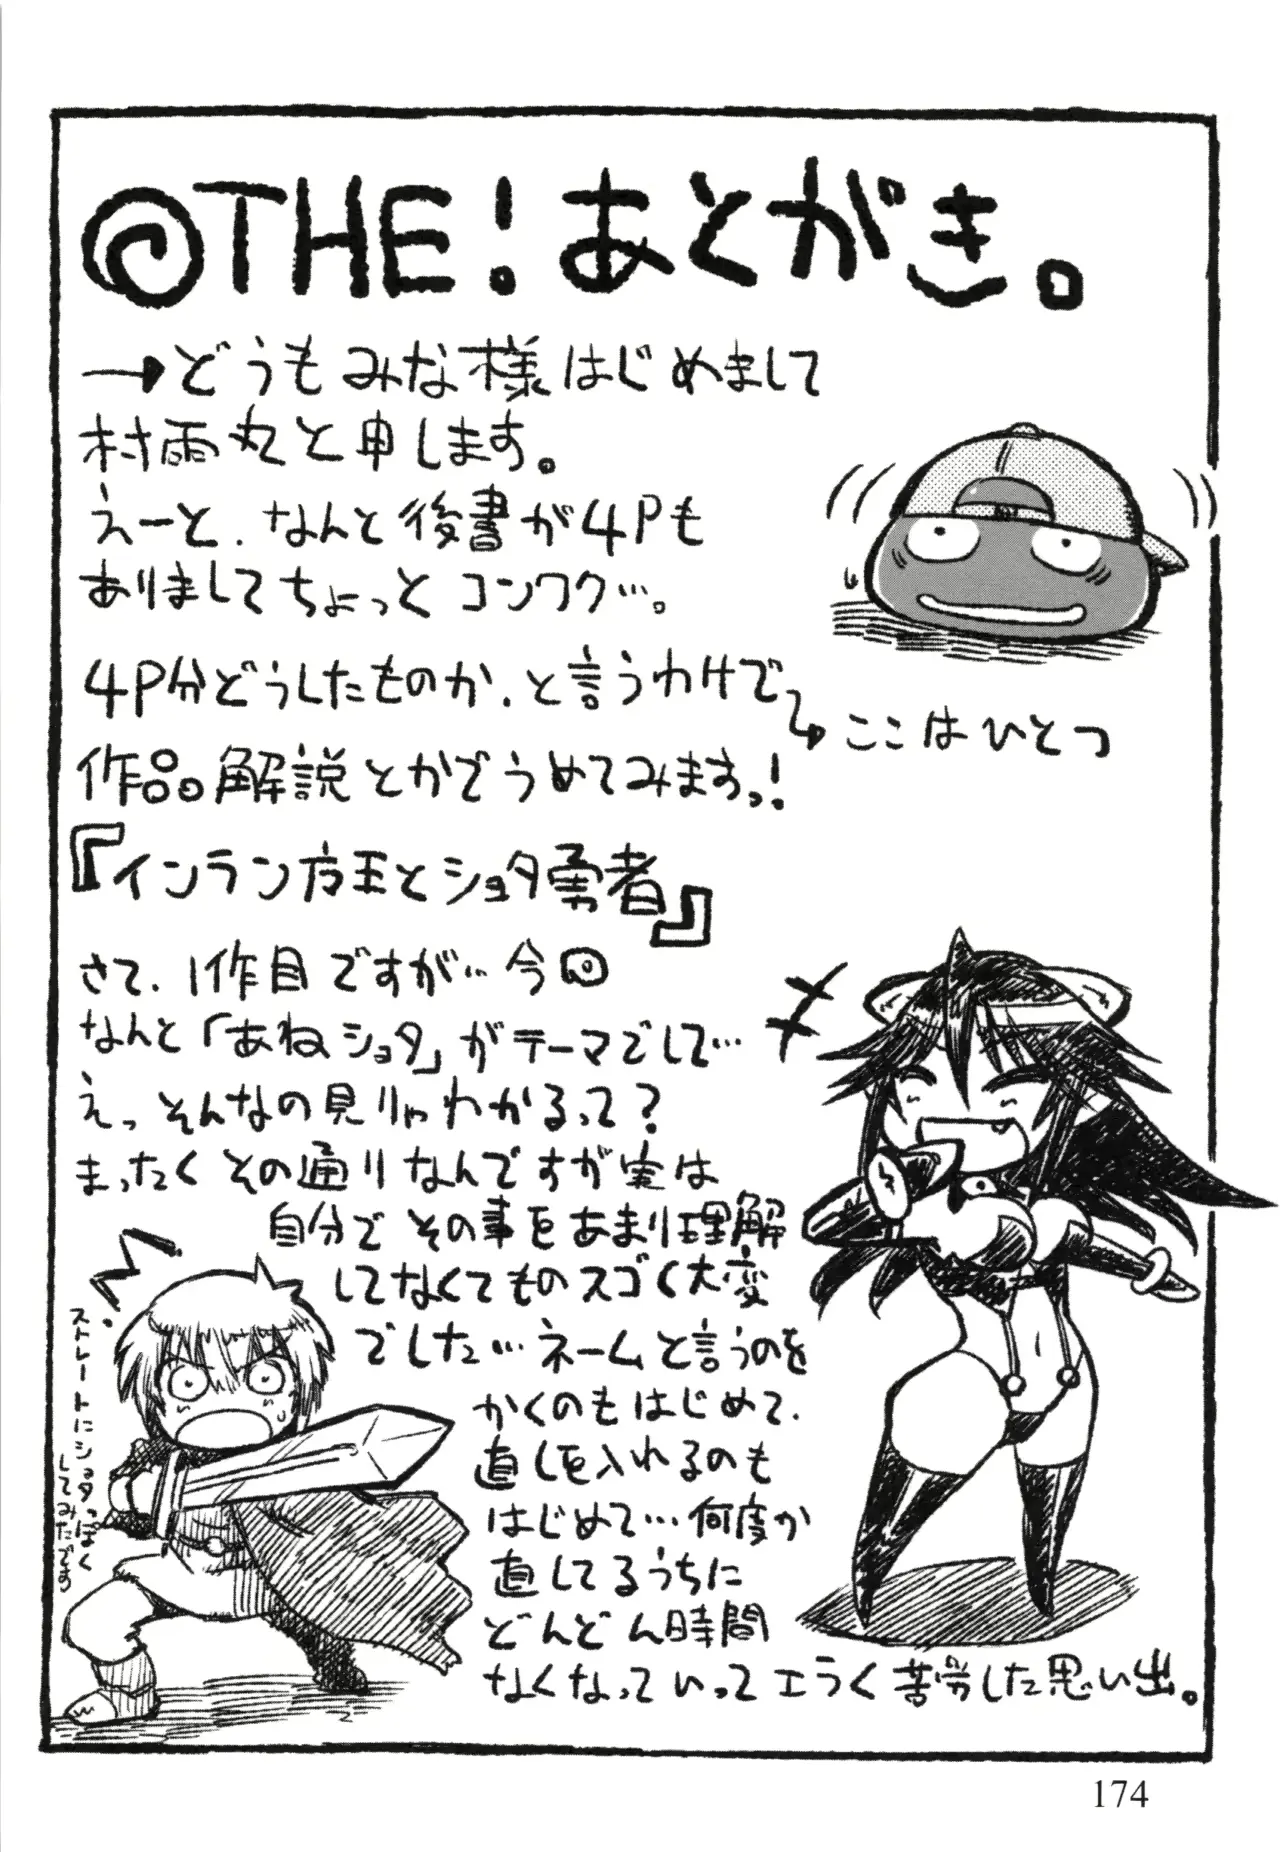 THE!あとがき。
→どうもみな様はじめまして
村雨丸と申します。
えーと、なんと後書が4Pも
ありましてちょっとコンワク…。
4P分どうしたものか、と言うわけで
→ここはひとつ
作品解説とかでうめてみますっ!
『インラン方王とショタ勇者』
さて、1作目ですが…今回
なんと「あねショタ」がテーマでして…
えっそんなの見りゃわかるって?
まったくその通りなんですが実は
自分でその事をあまり理解
してなくてものスゴく大変
でした…ネームと言うのを
かくのもはじめて、
直しを入れるのも
はじめて…何度か
直してるうちに
どんどん時間
なくなっていってエラく苦労した思い出。
ストレートにショタっぽく
してみたです
174